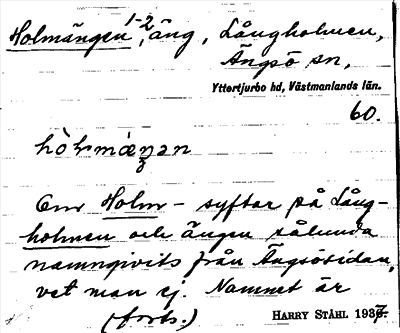 Holmängen 1-2, äng, Långholmen,
Ängsö sn,
Yttertjurbo hd, Västmanlands län.
60.
Om Holm- syftar på Lång-
holmen och ängen sålunda
namngivits från Ängsösidan,
vet man ej. Namnet är
(forts.)
HARRY STÅHL 1937.